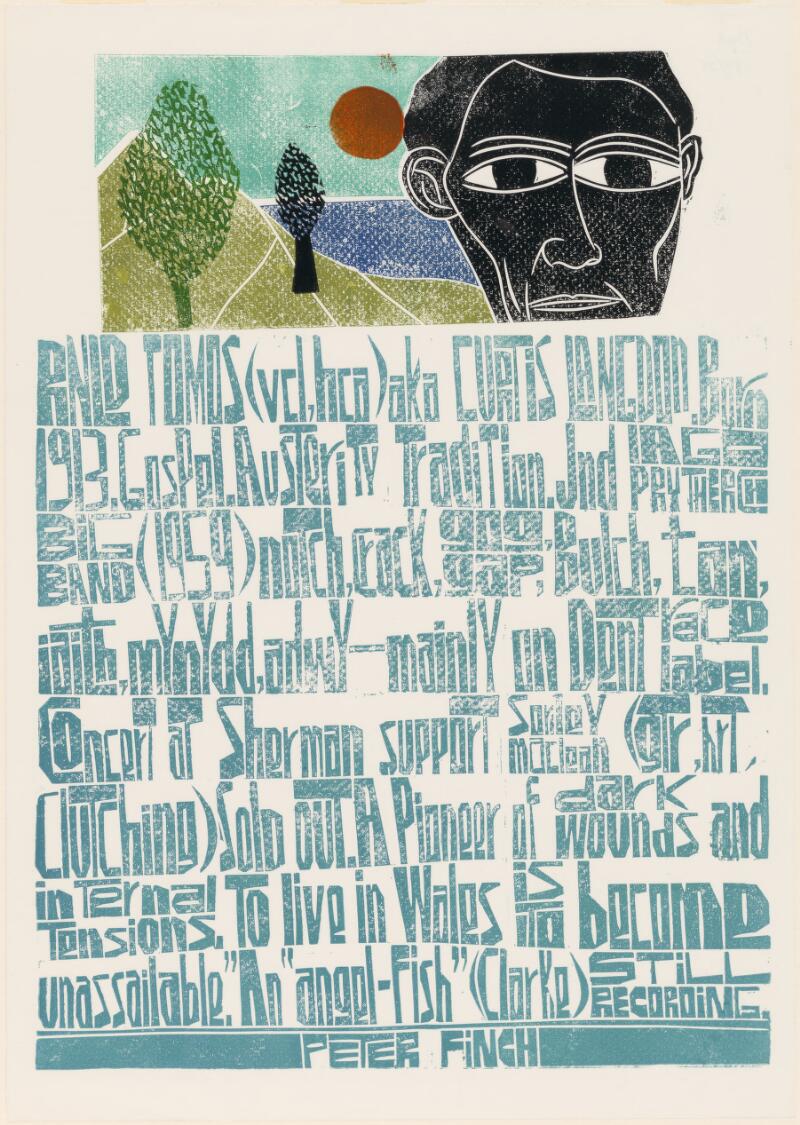 RNLD TOMOS (vcl, hca) aka CURTIS LANGDON. Born
1913. Gospel. Austerity Tradition. Jnd IAGO PRYTHERCH
BIG BAND (1959) notch, crack, gog, gap, Bwlch, tan,
iaith, mynydd, adwy — mainly on Dent label.
Concert at Sherman support Sorley mclean (gtr, hrt,
Clutching) Sold out. A Pioneer of dark wounds and
internal Tensions. To live in Wales is to become
unassailable." An "angel-fish" (Clarke) STiLL RECORDING.
PETER FiNCH